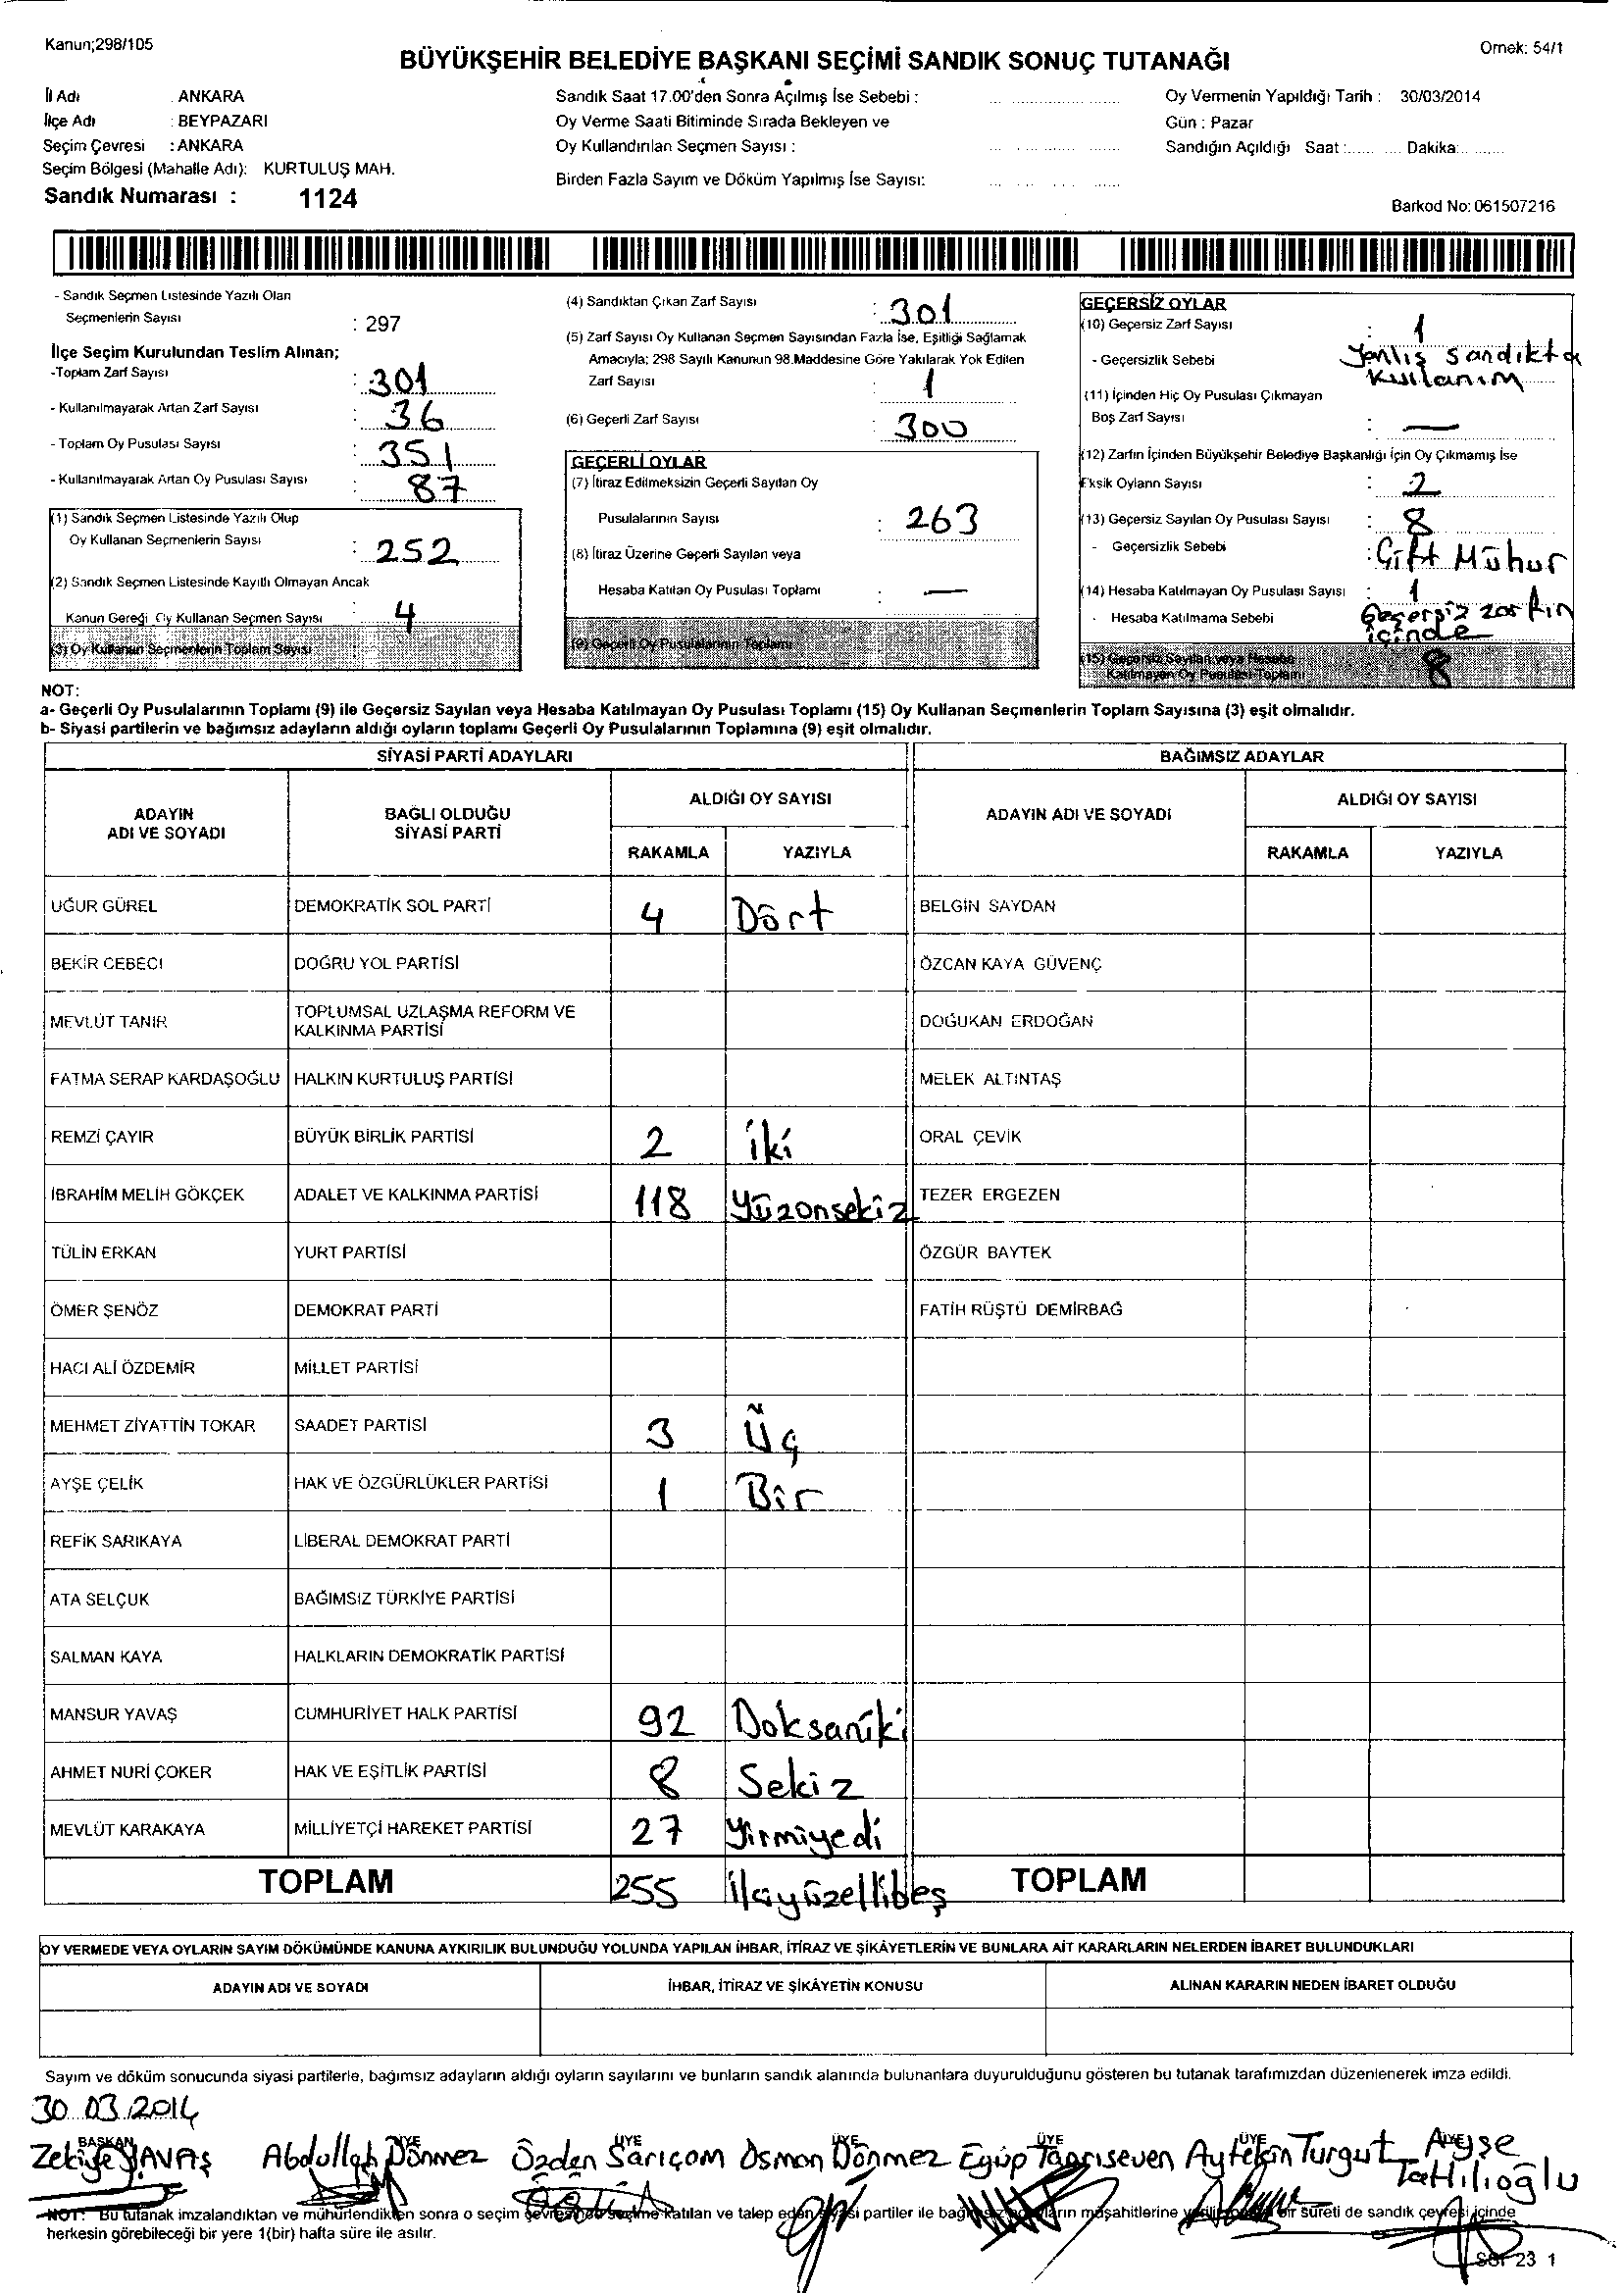 Kanun;298/105
Örnek: 54/1
BÜYÜKŞEHİR BELEDİYE BAŞKANI SEÇİMİ SANDIK SONUÇ TUTANAĞI
İl Adı : ANKARA
İlçe Adı : BEYPAZARI
Seçim Çevresi : ANKARA
Seçim Bölgesi (Mahalle Adı): KURTULUŞ MAH.
Sandık Numarası : 1124
Sandık Saat 17.00'den Sonra Açılmış İse Sebebi :
Oy Verme Saati Bitiminde Sırada Bekleyen ve
Oy Kullandırılan Seçmen Sayısı :
Birden Fazla Sayım ve Döküm Yapılmış İse Sayısı:
Oy Vermenin Yapıldığı Tarih : 30/03/2014
Gün : Pazar
Sandığın Açıldığı Saat :...... .... Dakika:.. ......
Barkod No: 061507216
- Sandık Seçmen Listesinde Yazılı Olan
Seçmenlerin Sayısı : 297
İlçe Seçim Kurulundan Teslim Alınan;
-Toplam Zarf Sayısı : 301
- Kullanılmayarak Artan Zarf Sayısı : 36
- Toplam Oy Pusulası Sayısı : 351
- Kullanılmayarak Artan Oy Pusulası Sayısı : 87
(1) Sandık Seçmen Listesinde Yazılı Olup
Oy Kullanan Seçmenlerin Sayısı : 252
(2) Sandık Seçmen Listesinde Kayıtlı Olmayan Ancak
Kanun Gereği Oy Kullanan Seçmen Sayısı : 4
(3) Oy Kullanan Seçmenlerin Toplam Sayısı
(4) Sandıktan Çıkan Zarf Sayısı : 301
(5) Zarf Sayısı Oy Kullanan Seçmen Sayısından Fazla İse, Eşitliği Sağlamak
Amacıyla; 298 Sayılı Kanunun 98.Maddesine Göre Yakılarak Yok Edilen
Zarf Sayısı : 1
(6) Geçerli Zarf Sayısı : 300
GEÇERLİ OYLAR
(7) İtiraz Edilmeksizin Geçerli Sayılan Oy
Pusulalarının Sayısı : 263
(8) İtiraz Üzerine Geçerli Sayılan veya
Hesaba Katılan Oy Pusulası Toplamı : —
(9) Geçerli Oy Pusulalarının Toplamı
GEÇERSİZ OYLAR
(10) Geçersiz Zarf Sayısı : 1
- Geçersizlik Sebebi Yanlış sandıkta
kullanım
(11) İçinden Hiç Oy Pusulası Çıkmayan
Boş Zarf Sayısı : —
(12) Zarfın İçinden Büyükşehir Belediye Başkanlığı İçin Oy Çıkmamış İse
Eksik Oyların Sayısı : 2
(13) Geçersiz Sayılan Oy Pusulası Sayısı : 8
- Geçersizlik Sebebi : Çift Mühür
(14) Hesaba Katılmayan Oy Pusulası Sayısı : 1
- Hesaba Katılmama Sebebi Geçersiz zarfın
içinde
(15) Geçersiz Sayılan veya Hesaba
Katılmayan Oy Pusulası Toplamı 8
NOT:
a- Geçerli Oy Pusulalarının Toplamı (9) ile Geçersiz Sayılan veya Hesaba Katılmayan Oy Pusulası Toplamı (15) Oy Kullanan Seçmenlerin Toplam Sayısına (3) eşit olmalıdır.
b- Siyasi partilerin ve bağımsız adayların aldığı oyların toplamı Geçerli Oy Pusulalarının Toplamına (9) eşit olmalıdır.
SİYASİ PARTİ ADAYLARI BAĞIMSIZ ADAYLAR
ADAYIN ADI VE SOYADI BAĞLI OLDUĞU SİYASİ PARTİ ALDIĞI OY SAYISI ADAYIN ADI VE SOYADI ALDIĞI OY SAYISI
RAKAMLA YAZIYLA RAKAMLA YAZIYLA
UĞUR GÜREL DEMOKRATİK SOL PARTİ 4 Dört BELGİN SAYDAN
BEKİR CEBECİ DOĞRU YOL PARTİSİ ÖZCAN KAYA GÜVENÇ
MEVLÜT TANIR TOPLUMSAL UZLAŞMA REFORM VE KALKINMA PARTİSİ DOĞUKAN ERDOĞAN
FATMA SERAP KARDAŞOĞLU HALKIN KURTULUŞ PARTİSİ MELEK ALTINTAŞ
REMZİ ÇAYIR BÜYÜK BİRLİK PARTİSİ 2 iki ORAL ÇEVİK
İBRAHİM MELİH GÖKÇEK ADALET VE KALKINMA PARTİSİ 118 Yüzonsekiz TEZER ERGEZEN
TÜLİN ERKAN YURT PARTİSİ ÖZGÜR BAYTEK
ÖMER ŞENÖZ DEMOKRAT PARTİ FATİH RÜŞTÜ DEMİRBAĞ
HACI ALİ ÖZDEMİR MİLLET PARTİSİ
MEHMET ZİYATTİN TOKAR SAADET PARTİSİ 3 Üç
AYŞE ÇELİK HAK VE ÖZGÜRLÜKLER PARTİSİ 1 Bir
REFİK SARIKAYA LİBERAL DEMOKRAT PARTİ
ATA SELÇUK BAĞIMSIZ TÜRKİYE PARTİSİ
SALMAN KAYA HALKLARIN DEMOKRATİK PARTİSİ
MANSUR YAVAŞ CUMHURİYET HALK PARTİSİ 92 Doksaniki
AHMET NURİ ÇOKER HAK VE EŞİTLİK PARTİSİ 8 Sekiz
MEVLÜT KARAKAYA MİLLİYETÇİ HAREKET PARTİSİ 27 Yirmiyedi
TOPLAM 255 ikiyüzellibeş TOPLAM
OY VERMEDE VEYA OYLARIN SAYIM DÖKÜMÜNDE KANUNA AYKIRILIK BULUNDUĞU YOLUNDA YAPILAN İHBAR, İTİRAZ VE ŞİKÂYETLERİN VE BUNLARA AİT KARARLARIN NELERDEN İBARET BULUNDUKLARI
ADAYIN ADI VE SOYADI İHBAR, İTİRAZ VE ŞİKÂYETİN KONUSU ALINAN KARARIN NEDEN İBARET OLDUĞU
Sayım ve döküm sonucunda siyasi partilerle, bağımsız adayların aldığı oyların sayılarını ve bunların sandık alanında bulunanlara duyurulduğunu gösteren bu tutanak tarafımızdan düzenlenerek imza edildi.
30.03.2014
BAŞKAN ÜYE ÜYE ÜYE ÜYE ÜYE ÜYE
Zekiye YAVAŞ Abdullah Dönmez Özden Sarıçam Osman Dönmez Eyüp Tanrıseven Aytekin Turgut Ayşe
Tatlılıoğlu
NOT: Bu tutanak imzalandıktan ve mühürlendikten sonra o seçim çevresinde seçime katılan ve talep eden siyasi partiler ile bağımsız adayların müşahitlerine bir sureti de sandık çevresi içinde
herkesin görebileceği bir yere 1(bir) hafta süre ile asılır.
23 1